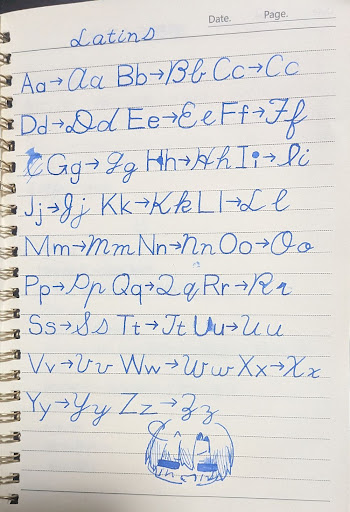 Date. Page.
Latins
Aa→Aa Bb→Bb Cc→Cc
Dd→Dd Ee→Ee Ff→Ff
Gg→Gg Hh→Hh Ii→Ii
Jj→Jj Kk→Kk Ll→Ll
Mm→Mm Nn→Nn Oo→Oo
Pp→Pp Qq→Qq Rr→Rr
Ss→Ss Tt→Tt Uu→Uu
Vv→Vv Ww→Ww Xx→Xx
Yy→Yy Zz→Zz